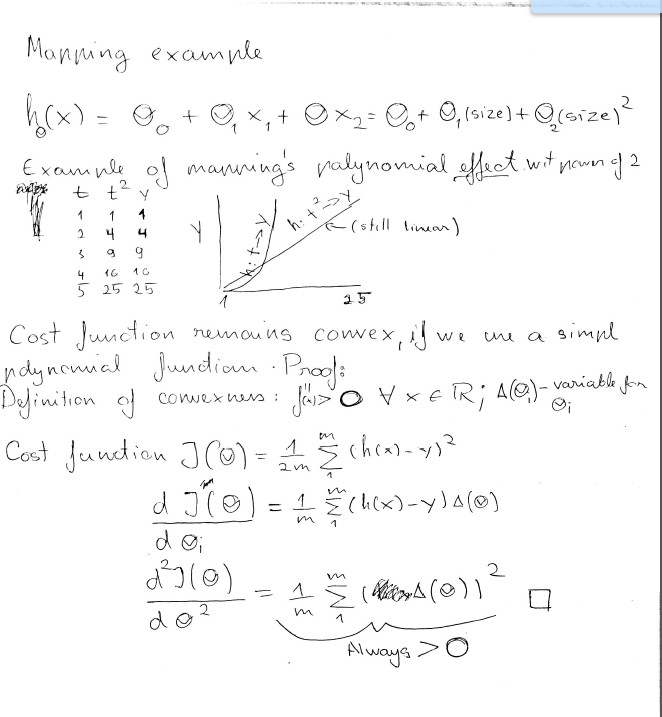 Mapping example
h_θ(x) = Θ₀ + Θ₁ x₁ + Θ x₂ = Θ₀ + Θ₁(size) + Θ₂(size)²
Example of mapping's polynomial effect wit power of 2
t t² y
1 1 1
2 4 4
3 9 9
4 16 16
5 25 25
Y
h: t→Y
h: t²→Y
(still linear)
1 25
Cost function remains convex, if we use a simpl
polynomial function. Proof:
Definition of convexness: f''(x) > 0 ∀ x ∈ ℝ; Δ(Θ₁) - variable for
Θᵢ
Cost function J(Θ) = 1/2m Σ₁ᵐ (h(x) - y)²
d J(Θ) / d Θᵢ = 1/m Σ₁ᵐ (h(x) - y) Δ(Θ)
d² J(Θ) / d Θ² = 1/m Σ₁ᵐ (Δ(Θ))² □
Always > 0